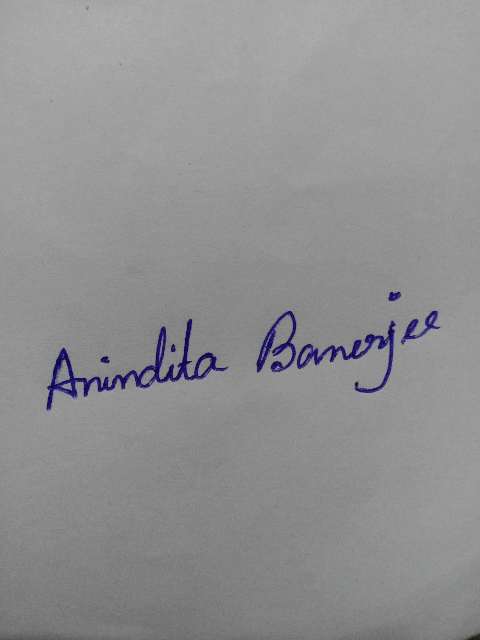 Anindita Banerjee